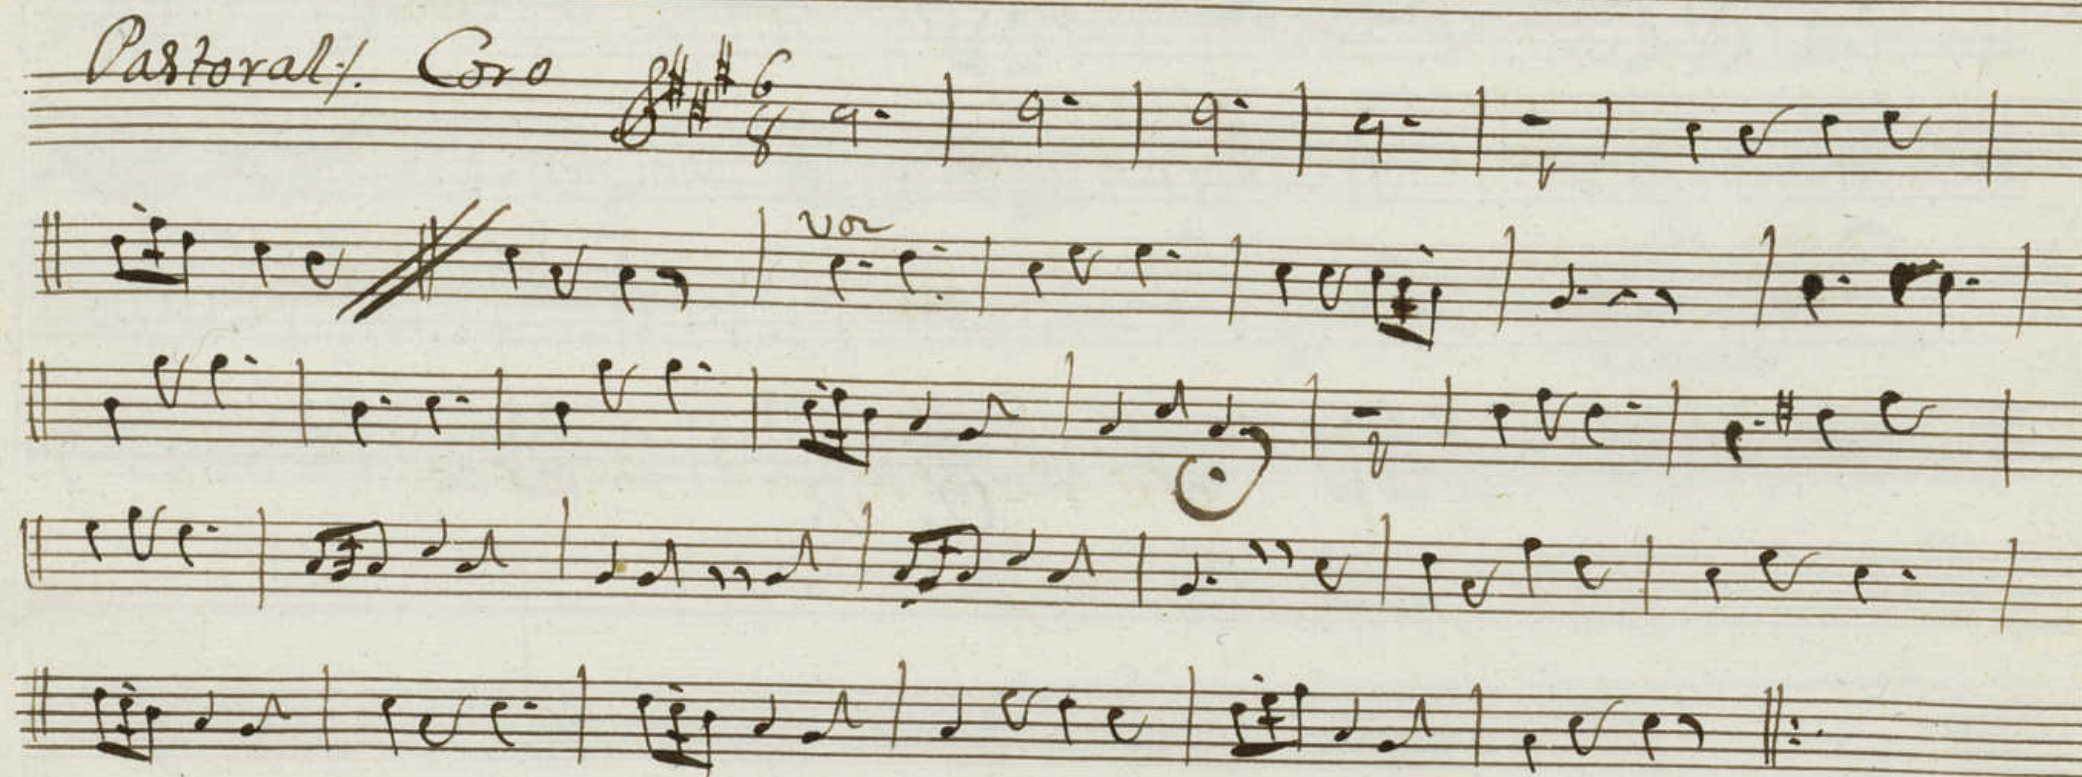 Pastoral/. Coro 6 8
voz